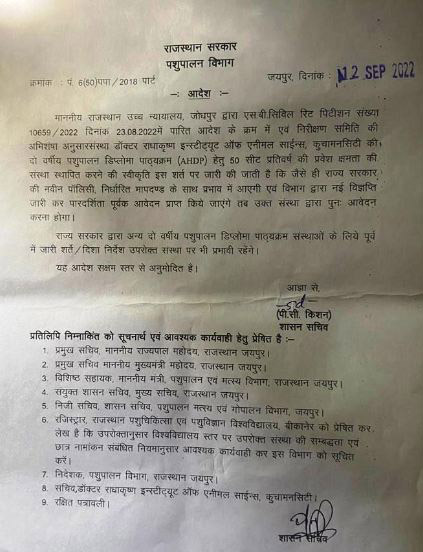 राजस्थान सरकार
पशुपालन विभाग
क्रमांक : पं. 6(50)पपा/2018 पार्ट
जयपुर, दिनांक : 12 SEP 2022
–: आदेश :–
माननीय राजस्थान उच्च न्यायालय, जोधपुर द्वारा एस.बी.सिविल रिट पिटीशन संख्या
10659/2022 दिनांक 23.08.2022में पारित आदेश के क्रम में एवं निरीक्षण समिति की
अभिशंषा अनुसारसंस्था डॉक्टर राधाकृष्ण इन्स्टीट्यूट ऑफ एनीमल साईन्स, कुचामनसिटी की
दो वर्षीय पशुपालन डिप्लोमा पाठ्यक्रम (AHDP) हेतु 50 सीट प्रतिवर्ष की प्रवेश क्षमता की
संस्था स्थापित करने की स्वीकृति इस शर्त पर जारी की जाती है कि जैसे ही राज्य सरकार,
की नवीन पॉलिसी, निर्धारित मापदण्ड के साथ प्रभाव में आएगी एवं विभाग द्वारा नई विज्ञप्ति
जारी कर पारदर्शिता पूर्वक आवेदन प्राप्त किये जाएंगे तब उक्त संस्था द्वारा पुनः आवेदन
करना होगा।
राज्य सरकार द्वारा अन्य दो वर्षीय पशुपालन डिप्लोमा पाठ्यक्रम संस्थाओं के लिये पूर्व
में जारी शर्ते/दिशा निर्देश उपरोक्त संस्था पर भी प्रभावी रहेंगे।
यह आदेश सक्षम स्तर से अनुमोदित है।
आज्ञा से,
(पी.सी. किशन)
शासन सचिव
प्रतिलिपि निम्नांकित को सूचनार्थ एवं आवश्यक कार्यवाही हेतु प्रेषित है :–
1. प्रमुख सचिव, माननीय राज्यपाल महोदय, राजस्थान जयपुर।
2. प्रमुख सचिव माननीय मुख्यमंत्री महोदय, राजस्थान जयपुर।
3. विशिष्ठ सहायक, माननीय मंत्री, पशुपालन एवं मत्स्य विभाग, राजस्थान जयपुर।
4. संयुक्त शासन सचिव, मुख्य सचिव, राजस्थान जयपुर।
5. निजी सचिव, शासन सचिव, पशुपालन मत्स्य एवं गोपालन विभाग, जयपुर।
6. रजिस्ट्रार, राजस्थान पशुचिकित्सा एवं पशुविज्ञान विश्वविद्यालय, बीकानेर को प्रेषित कर
लेख है कि उपरोक्तानुसार विश्वविद्यालय स्तर पर उपरोक्त संस्था की सम्बद्धता एवं
छात्र नामांकन संबंधित नियमानुसार आवश्यक कार्यवाही कर इस विभाग को सूचित
करें।
7. निदेशक, पशुपालन विभाग, राजस्थान जयपुर।
8. सचिव,डॉक्टर राधाकृष्ण इन्स्टीट्यूट ऑफ एनीमल साईन्स, कुचामनसिटी।
9. रक्षित पत्रावली।
शासन सचिव